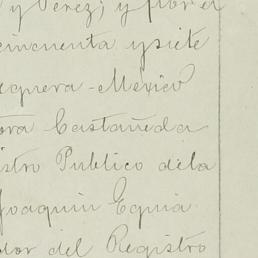 y Perez; y por el
cincuenta y siete
quera - Mexico
ora Castañeda
istro Publico de la
Joaquin Eguia
dor del Registro